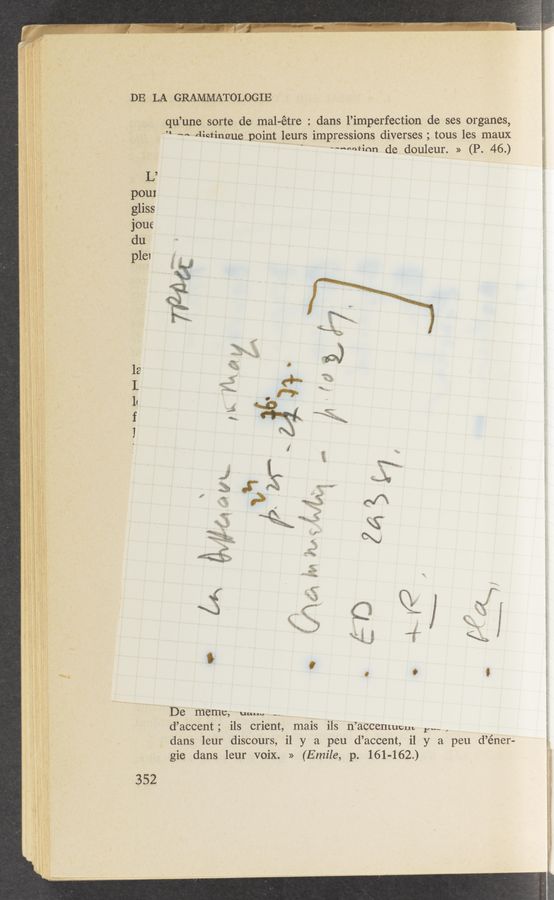 DE LA GRAMMATOLOGIE
qu'une sorte de mal-être : dans l'imperfection de ses organes,
distingue point leurs impressions diverses ; tous les maux
de douleur. » (P. 46.)
L'
pour
gliss
joue
du
ple
la
TRACE
• La différance in Marg
p. 25 - 27 77.
76.
Grammatolog - p. 102 sq.
• ED 293 sq.
• + R.
De même,
d'accent ; ils crient, mais ils n'accentuent
dans leur discours, il y a peu d'accent, il y a peu d'éner-
gie dans leur voix. » (Emile, p. 161-162.)
352